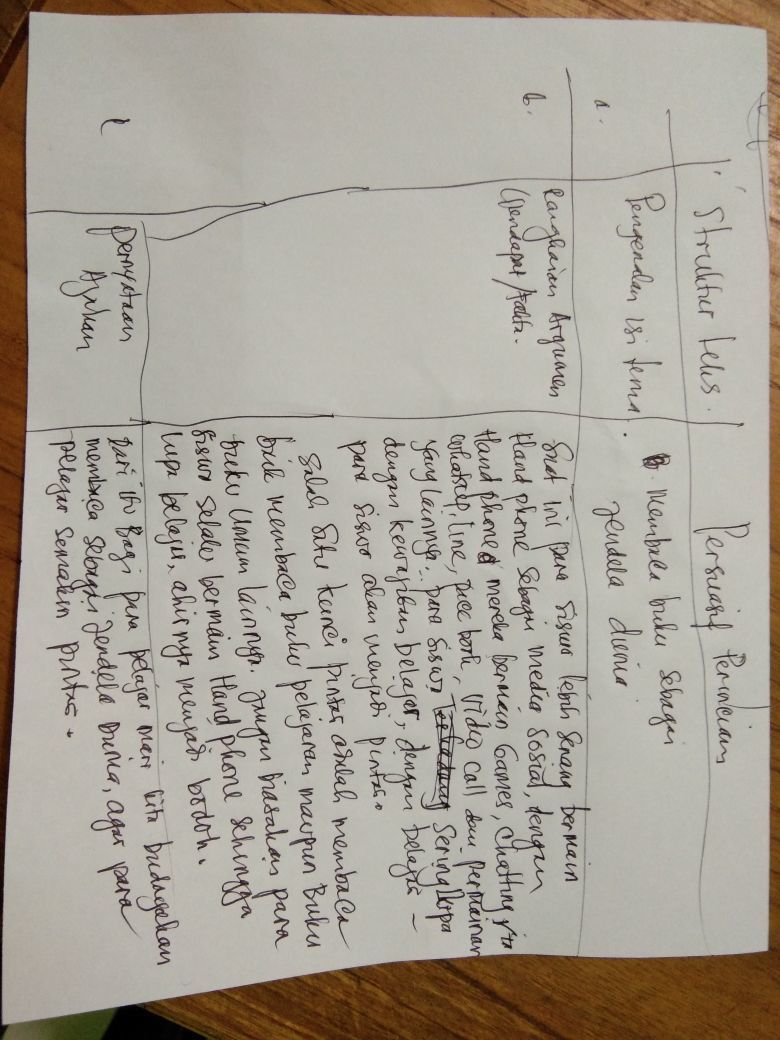 Struktur teks.
Persuasif Perincian
a.
Pengenalan isi tema.
Membaca buku sebagai
jendela dunia
b.
Rangkaian Argumen
(Pendapat/fakta.
Saat ini para siswa lebih senang bermain
Handphone sebagai media sosial, dengan
Handphone mereka bermain Games, Chatting
whatsap, line, face book, Video Call dan permainan
yang lainnya. para siswa sering lupa
dengan kewajiban belajar, dengan belajar –
para siswa akan menjadi pintar.
Salah satu kunci pintar adalah membaca
baik membaca buku pelajaran maupun Buku
buku Umum lainnya. Jangan biasakan para
siswa selalu bermain Handphone sehingga
lupa belajar, ahirnya menjadi bodoh.
c
Pernyataan
Ajakan
Dari itu Bagi para pelajar mari kita budayakan
membaca sebagai jendela Dunia, agar para
pelajar semakin pintar.